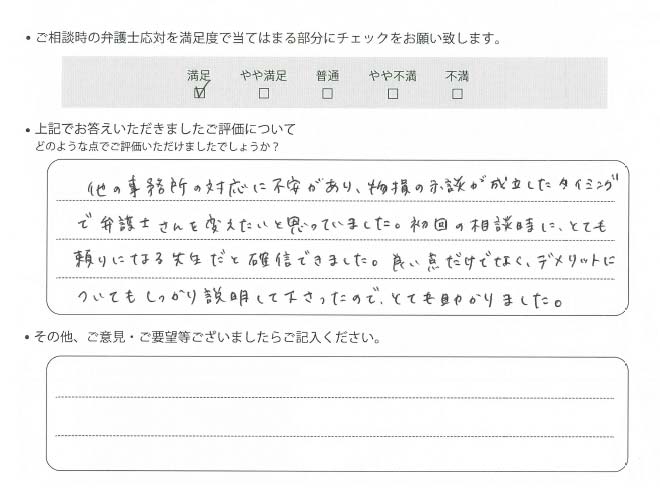 • ご相談時の弁護士応対を満足度で当てはまる部分にチェックをお願い致します。
満足 やや満足 普通 やや不満 不満
☑ □ □ □ □
• 上記でお答えいただきましたご評価について
どのような点でご評価いただけましたでしょうか？
他の事務所の対応に不安があり、物損の示談が成立したタイミング
で弁護士さんを変えたいと思っていました。初回の相談時に、とても
頼りになる先生だと確信できました。良い点だけでなく、デメリットに
ついてもしっかり説明して下さったので、とても助かりました。
• その他、ご意見・ご要望等ございましたらご記入ください。